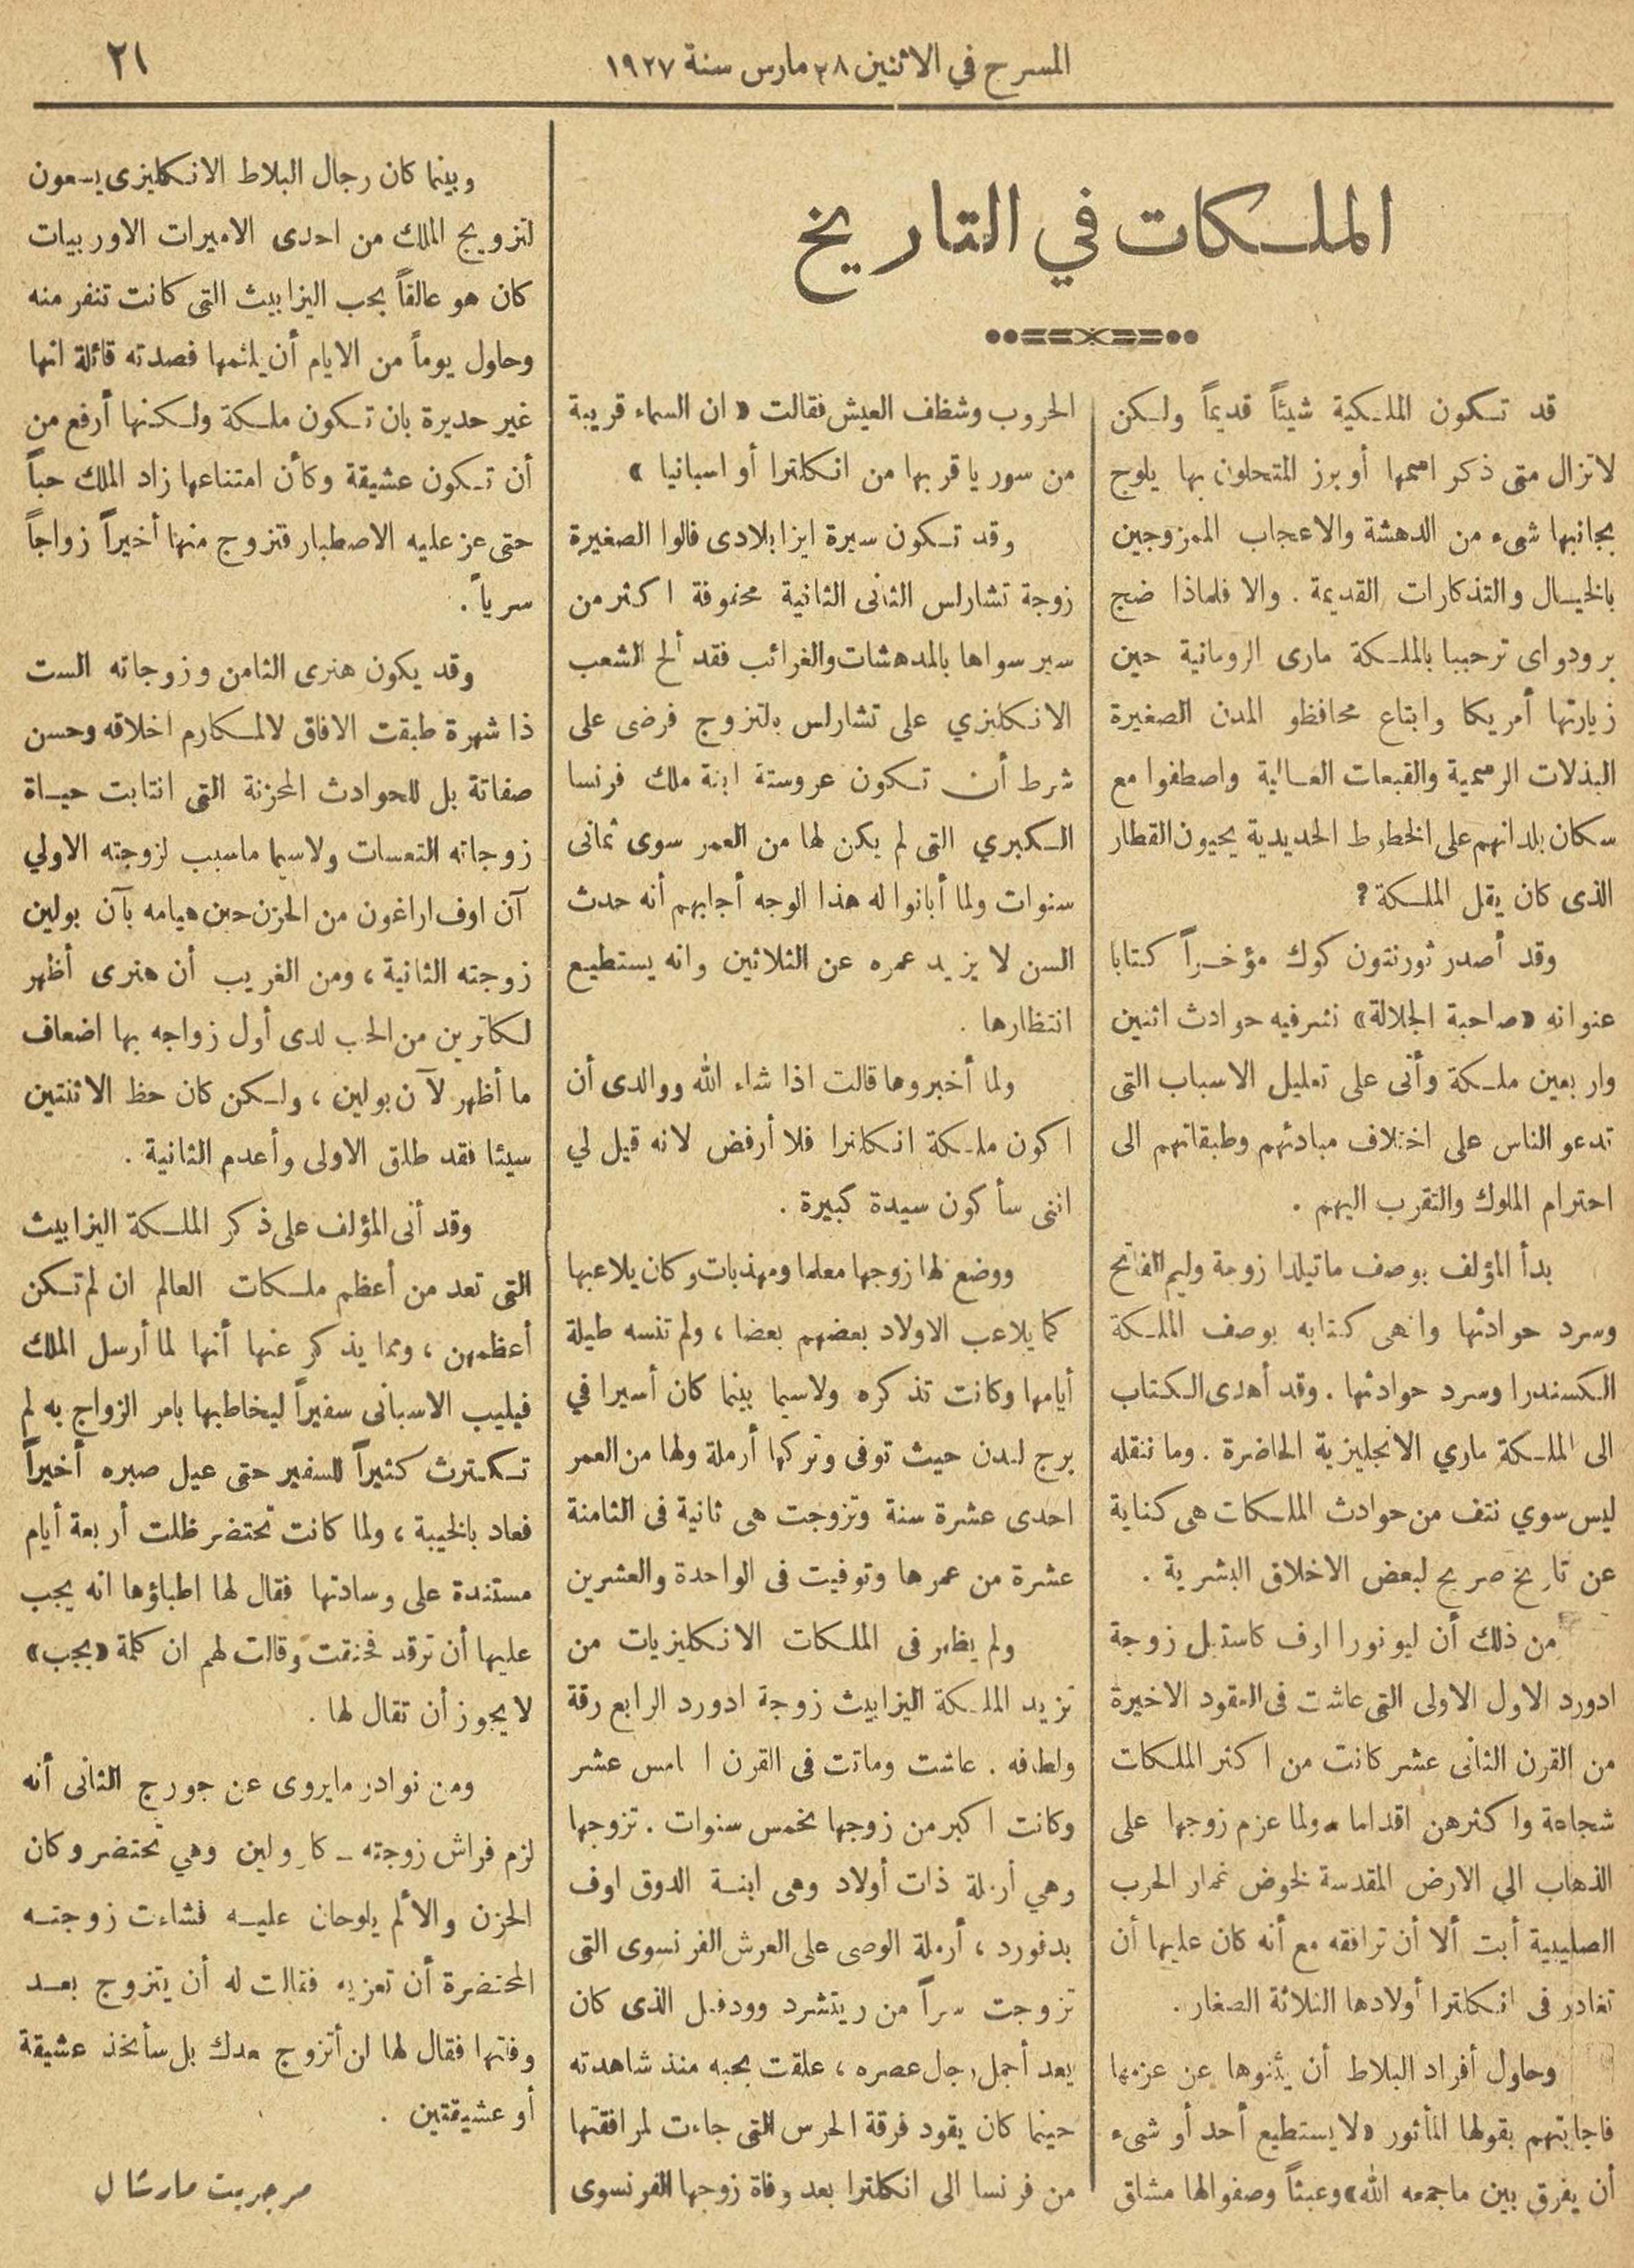 المسرح في الاثنين ٢٨ مارس سنة ١٩٢٧
٢١
الملكات في التاريخ
قد تكون الملكية شيئاً قديماً ولكن
لاتزال متى ذكر اسمها أو برز المتحلون بها يلوح
بجانبها شىء من الدهشة والاعجاب الممزوجين
بالخيال والتذكارات القديمة . والا فلماذا ضج
برودواى ترحيبا بالملكة مارى الرومانية حين
زيارتها أمريكا وابتاع محافظو المدن الصغيرة
البذلات الرسمية والقبعات العالية واصطفوا مع
سكان بلدانهم على الخطوط الحديدية يحيون القطار
الذى كان يقل الملكة ؟
وقد أصدر ثورنتون كوك مؤخراً كتابا
عنوانه «صاحبة الجلالة» نشر فيه حوادث اثنين
واربعين ملكة وأتى على تعليل الاسباب التى
تدعو الناس على اختلاف مبادئهم وطبقاتهم الى
احترام الملوك والتقرب اليهم .
بدأ المؤلف بوصف ماتيلدا زوجة وليم الفاتح
وسرد حوادثها وانهى كتابه بوصف الملكة
الكسندرا وسرد حوادثها . وقد أهدى الكتاب
الى الملكة ماري الانجليزية الحاضرة . وما ننقله
ليس سوي نتف من حوادث الملكات هى كناية
عن تاريخ صريح لبعض الاخلاق البشرية .
من ذلك أن ليونورا اوف كاستيل زوجة
ادورد الاول الاولى التى عاشت فى العقود الاخيرة
من القرن الثانى عشر كانت من اكثر الملكات
شجاعة واكثرهن اقداما . ولما عزم زوجها على
الذهاب الي الارض المقدسة لخوض غمار الحرب
الصليبية أبت ألا أن ترافقه مع أنه كان عليها أن
تغادر فى انكلترا أولادها الثلاثة الصغار .
وحاول أفراد البلاط أن يثنوها عن عزمها
فاجابتهم بقولها المأثور «لايستطيع أحد أو شىء
أن يفرق بين ماجمعه الله» وعبثاً وصفوا لها مشاق
الحروب وشظف العيش فقالت « ان السماء قريبة
من سوريا قربها من انكلترا أو اسبانيا »
وقد تكون سيرة ايزابلادى فالوا الصغيرة
زوجة تشارلس الثانى الثانية محفوفة اكثر من
سير سواها بالمدهشات والغرائب فقد ألح الشعب
الانكليزي على تشارلس بالتزوج فرضى على
شرط أن تكون عروستة ابنة ملك فرنسا
الكبري التى لم يكن لها من العمر سوى ثمانى
سنوات ولما أبانوا له هذا الوجه أجابهم أنه حدث
السن لا يزيد عمره عن الثلاثين وانه يستطيع
انتظارها .
ولما أخبروها قالت اذا شاء الله ووالدى أن
اكون ملكة انكلترا فلا أرفض لانه قيل لي
اننى سأكون سيدة كبيرة .
ووضع لها زوجها معلما ومهذبات وكان يلاعبها
كما يلاعب الاولاد بعضهم بعضا ، ولم تنسه طيلة
أيامها وكانت تذكره ولاسيما بينما كان أسيرا في
برج لندن حيث توفى وتركها أرملة ولها من العمر
احدى عشرة سنة وتزوجت هى ثانية فى الثامنة
عشرة من عمرها وتوفيت فى الواحدة والعشرين
ولم يظهر فى الملكات الانكليزيات من
تزيد الملكة اليزابيث زوجة ادورد الرابع رقة
ولطافه . عاشت وماتت فى القرن ا امس عشر
وكانت اكبر من زوجها بخمس سنوات . تزوجها
وهي أرملة ذات أولاد وهى ابنة الدوق اوف
بدفورد ، أرملة الوصى على العرش الفرنسوى التى
تزوجت سراً من ريتشرد وودفيل الذى كان
يعد أجمل رجل عصره ، علقت بحبه منذ شاهدته
حينما كان يقود فرقة الحرس التى جاءت لمرافقتها
من فرنسا الى انكلترا بعد وفاة زوجها الفرنسوى
وبينما كان رجال البلاط الانكليزى يسعون
لتزويج الملك من احدى الاميرات الاوربيات
كان هو عالقاً بحب اليزابيث التى كانت تنفر منه
وحاول يوماً من الايام أن يلثمها فصدته قائلة انها
غير حديرة بان تكون ملكة ولكنها أرفع من
أن تكون عشيقة وكأن امتناعها زاد الملك حباً
حتى عز عليه الاصطبار فتزوج منها أخيراً زواجاً
سرياً .
وقد يكون هنرى الثامن وزوجاته الست
ذا شهرة طبقت الافاق لالمكارم اخلاقه وحسن
صفاتة بل للحوادث المحزنة التى انتابت حياة
زوجاته التعسات ولاسيما ماسبب لزوجته الاولي
آن اوف اراغون من الحزن حين هيامه بآن بولين
زوجته الثانية ، ومن الغريب أن هنرى أظهر
لكاترين من الحب لدى أول زواجه بها اضعاف
ما أظهر لآن بولين ، ولكن كان حظ الاثنتين
سيئا فقد طلق الاولى وأعدم الثانية .
وقد أتى المؤلف على ذكر الملكة اليزابيث
التى تعد من أعظم ملكات العالم ان لم تكن
أعظمهن ، ومما يذكر عنها أنها لما أرسل الملك
فيليب الاسبانى سفيراً ليخاطبها بامر الزواج به لم
تكترث كثيراً للسفير حتى عيل صبره أخيراً
فعاد بالخيبة ، ولما كانت تحتضر ظلت أربعة أيام
مستندة على وسادتها فقال لها اطباؤها انه يجب
عليها أن ترقد فحنقت وقالت لهم ان كلمة «يجب»
لايجوز أن تقال لها .
ومن نوادر مايروى عن جورج الثانى أنه
لزم فراش زوجته – كارولين وهي تحتضر وكان
الحزن والألم يلوحان عليه فشاءت زوجته
المحتضرة أن تعزيه فقالت له أن يتزوج بعد
وفتها فقال لها لن أتزوج بعدك بل سأتخذ عشيقة
أو عشيقتين .
مرجريت مارشال